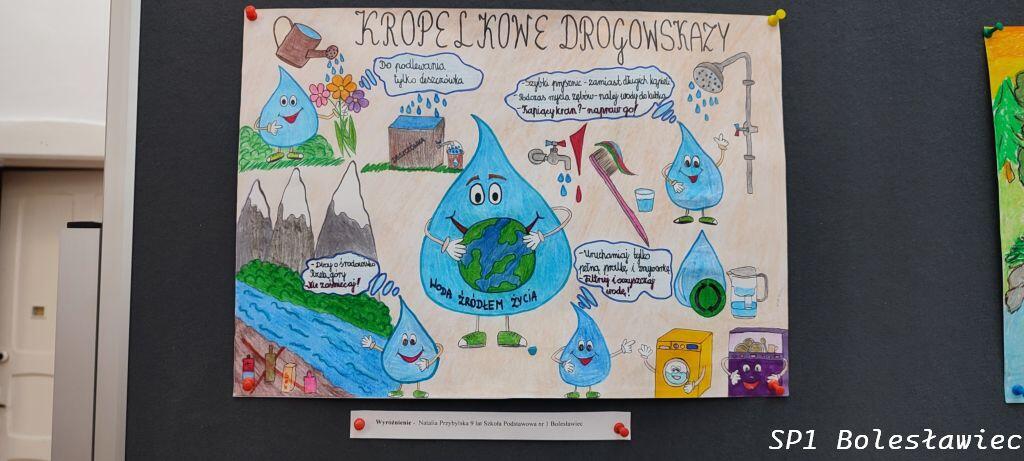 KROPELKOWE DROGOWSKAZY
Do podlewania
tylko deszczówka
-Szybki prysznic - zamiast długich kąpieli
Podczas mycia zębów - nalej wody do kubka
-Kapiący kran? - napraw go!
deszczówka
WODA ŹRÓDŁEM ŻYCIA
- Dbaj o środowisko
rzeki, góry
-Nie zaśmiecaj!
-Uruchamiaj tylko
pełną pralkę i zmywarkę
-Filtruj i oczyszczaj
wodę!
Wyróżnienie - Natalia Przybylska 9 lat Szkoła Podstawowa nr 1 Bolesławiec
SP1 Bolesławiec